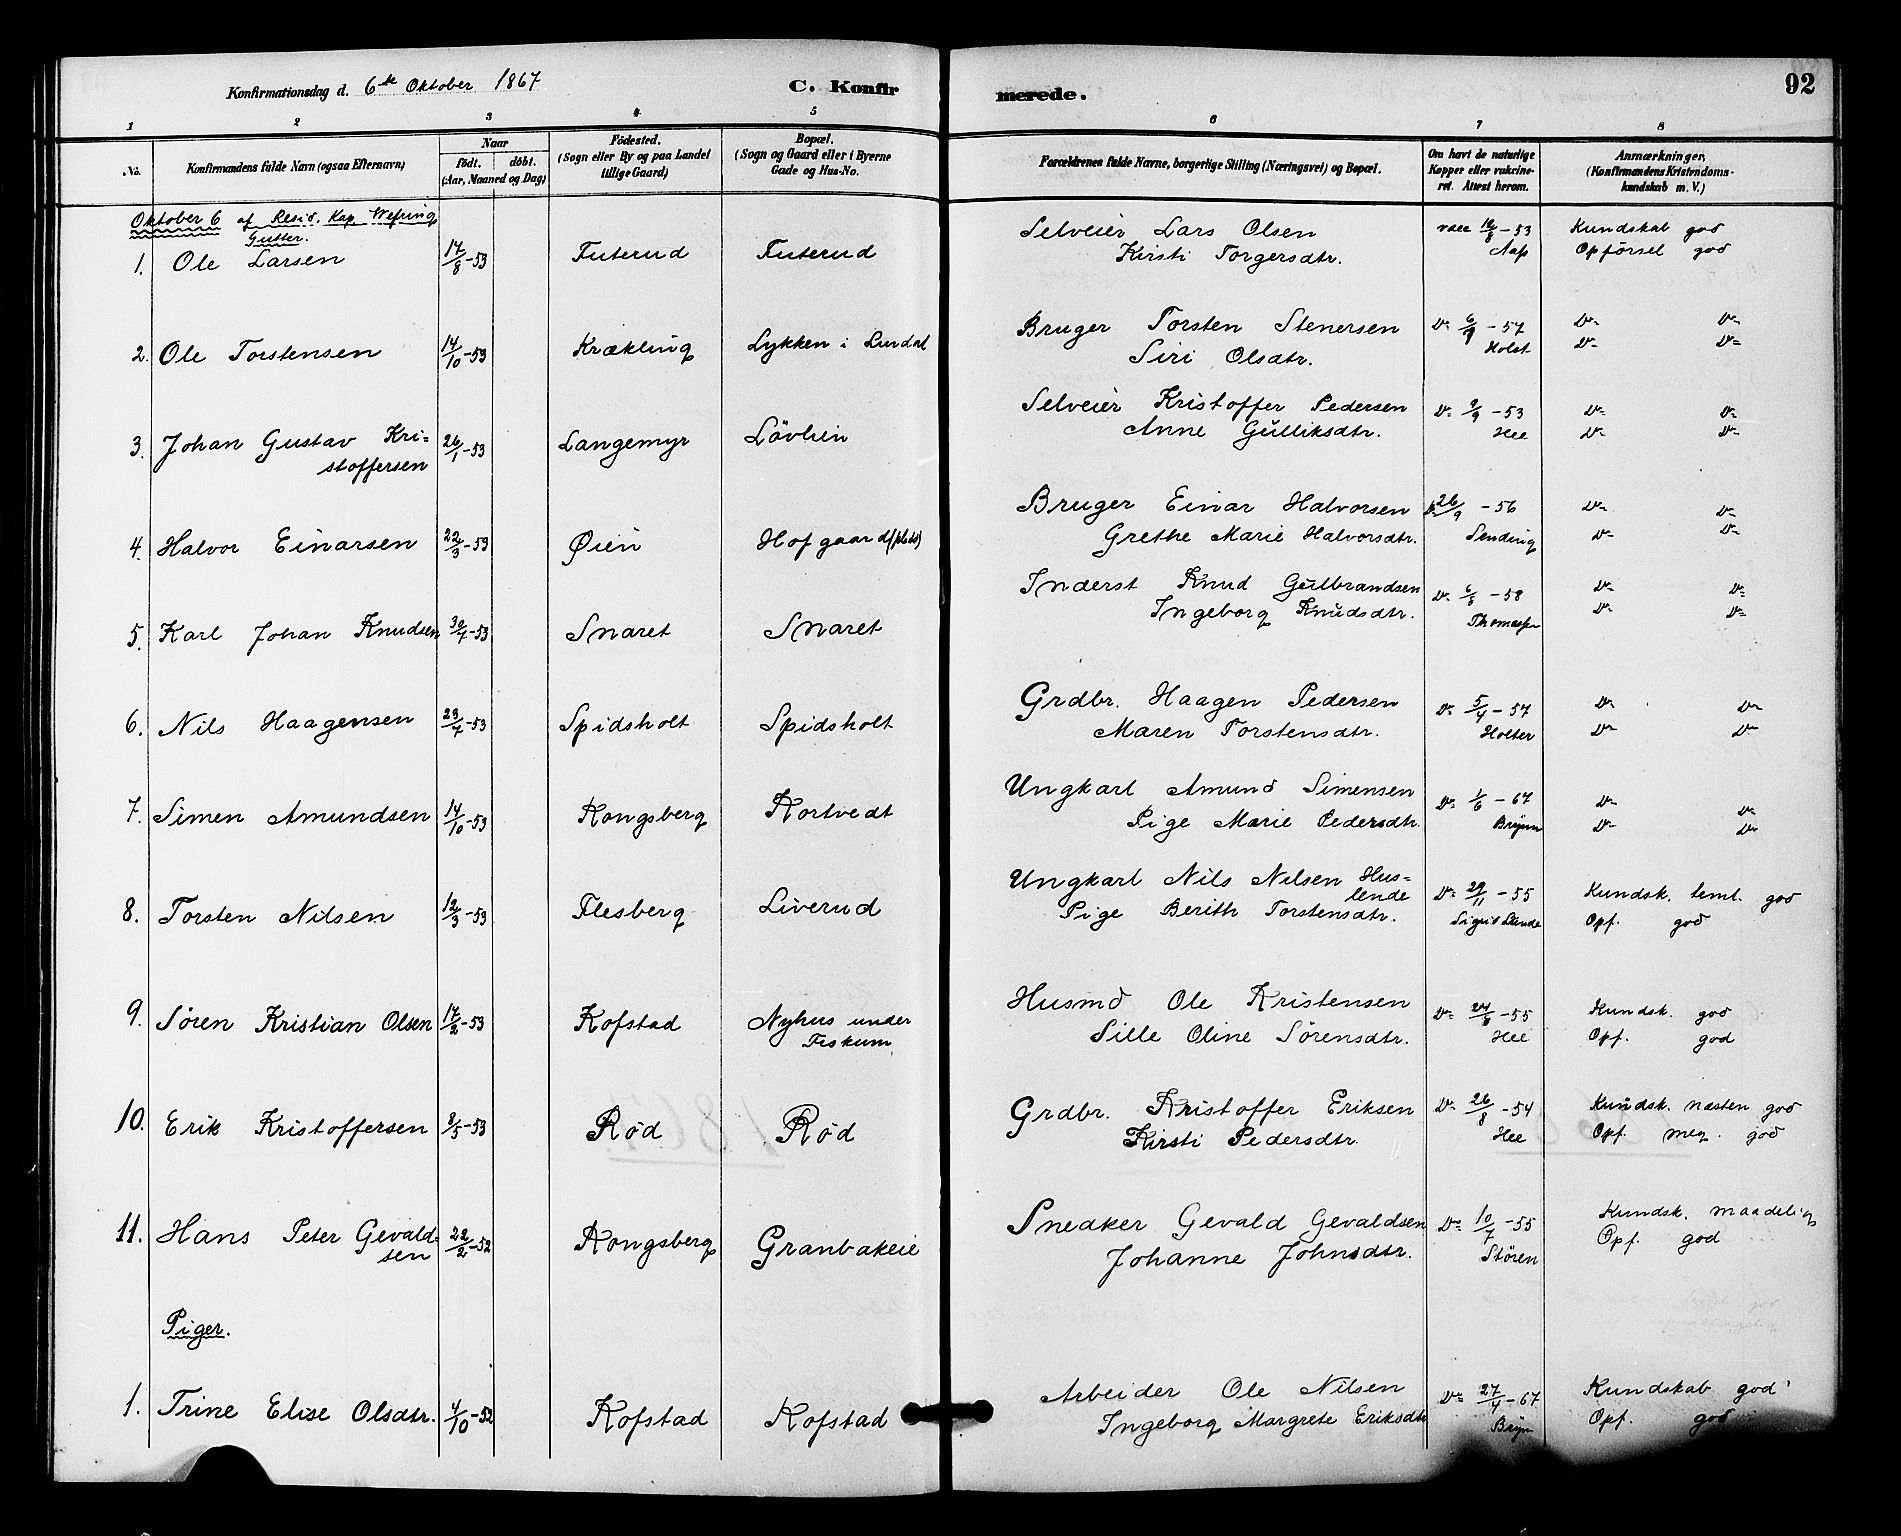 Konfirmationsdag d. 6te Oktober 1867 C. Konfir merede. 92
1 2 3 4 5 6 7 8
No. Konfirmandens fulde Navn (ogsaa Efternavn) Naar födt. döbt. (Aar, Maaned og Dag)
Födested. (Sogn eller By og paa Landet tillige Gaard.)
Bopæl. (Sogn og Gaard eller i Byerne Gade og Hus-No.
Forældrenes fulde Navne, borgerlige Stilling (Næringsvei) og Bopæl.
Om havt de naturlige Kopper eller vakcineret. Attest herom.
Anmærkninger, (Konfirmandens Kristendomskundskab m. V.)
Oktober 6 af Resid. Kap. Wefring
Gutter.
1. Ole Larsen 17/8-53 Futerud Futerud Selveier Lars Olsen vacc 18/8-53 Kundskab god
Kirsti Torgersdtr. Aas Opförsel god
2. Ole Torstensen 14/10-53 Krækling Lykken i Lurdal Bruger Torsten Stenersen Do 6/9-57 Do Do
Siri Olsdtr. Holst Do Do
3. Johan Gustav Kri=
stoffersen 26/1-53 Langemyr Lövlien Selveier Kristoffer Pedersen Do 9/9-53 Do Do
Anne Gulliksdtr. Hee Do Do
4. Halvor Einarsen 22/3-53 Øien Hofgaard (plads) Bruger Einar Halvorsen Do 26/9-56 Do Do
Grethe Marie Halvorsdtr. Sending Do Do
5. Karl Johan Knudsen 30/7-53 Snaret Snaret Inderst Knud Gulbrandsen Do 6/8-58 Do Do
Ingeborg Knudsdtr. Thomassen Do Do
6. Nils Haagensen 23/7-53 Spidsholt Spidsholt Grdbr. Haagen Pedersen Do 5/4-57 Do Do
Maren Torstensdtr. Holter Do Do
7. Simen Amundsen 14/10-53 Kongsberg Kortvedt Ungkarl Amund Simensen Do 1/6-67 Do Do
Pige Marie Pedersdtr. Brynn Do Do
8. Torsten Nilsen 12/3-53 Flesberg Liverud Ungkarl Nils Nilsen Hus=
lende Do 29/11-55 Kundsk. teml. god
Pige Berith Torstensdtr. Sigrid Lande Opf. god
9. Sören Kristian Olsen 17/2-53 Kofstad Nyhus under
Fiskum Husmd Ole Kristensen Do 24/8-55 Kundsk. god
Sille Oline Sörensdtr. Hee Opf. god
10. Erik Kristoffersen 8/5-53 Röd Röd Grdbr. Kristoffer Eriksen Do 26/8-54 Kundsk. næsten god
Kirsti Pedersdtr. Hee Opf. meg. god
11. Hans Peter Gevald=
sen 22/2-52 Kongsberg Granbakeie Snedker Gevald Gevaldsen Do 10/7-55 Kundsk. maadelig
Johanne Johnsdtr. Stören Opf. god
Piger.
1. Trine Elise Olsdtr. 4/10-52 Kofstad Kofstad Arbeider Ole Nilsen Do 27/4-67 Kundskab god
Ingeborg Margrete Eriksdtr Bryn Opf. god